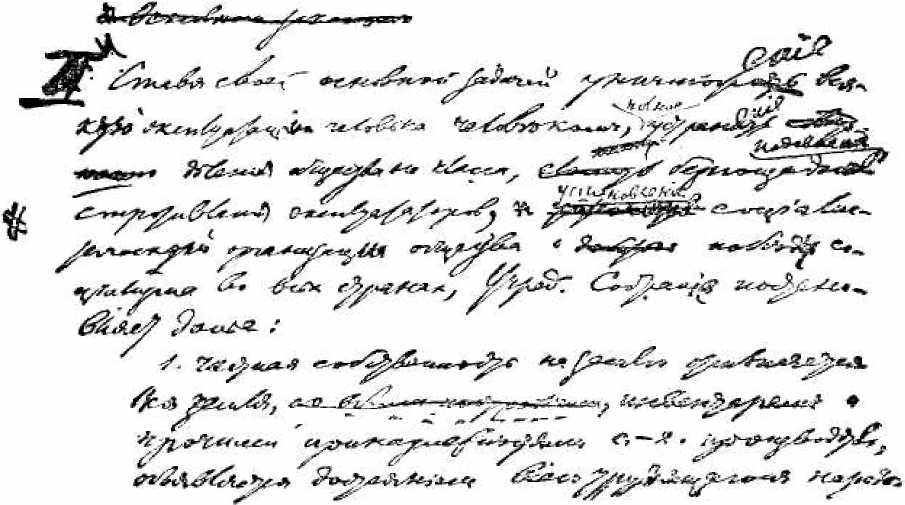 II
Ставя своей основной задачей уничтожение вся-
кой эксплуатации человека человеком, полное устранение
деления общества на классы, беспощадное подавление
сопротивления эксплуататоров, установление социалис-
тической организации общества и победы со-
циализма во всех странах, Учред. Собрание постано-
вляет далее:
1. частная собственность на землю отменяется
Вся земля, со всеми постройками, инвентарем и
прочими принадлежностями с.-х. производства,
объявляется достоянием всего трудящегося народа